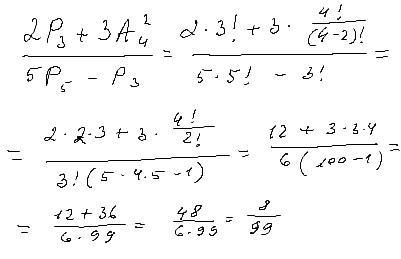 (2P₃ + 3A₄²)/(5P₅ - P₃) = (2·3! + 3·4!/(4-2)!)/(5·5! - 3!) =
= (2·2·3 + 3·4!/2!)/(3!(5·4·5-1)) = (12 + 3·3·4)/(6(100-1)) =
= (12+36)/(6·99) = 48/(6·99) = 8/99